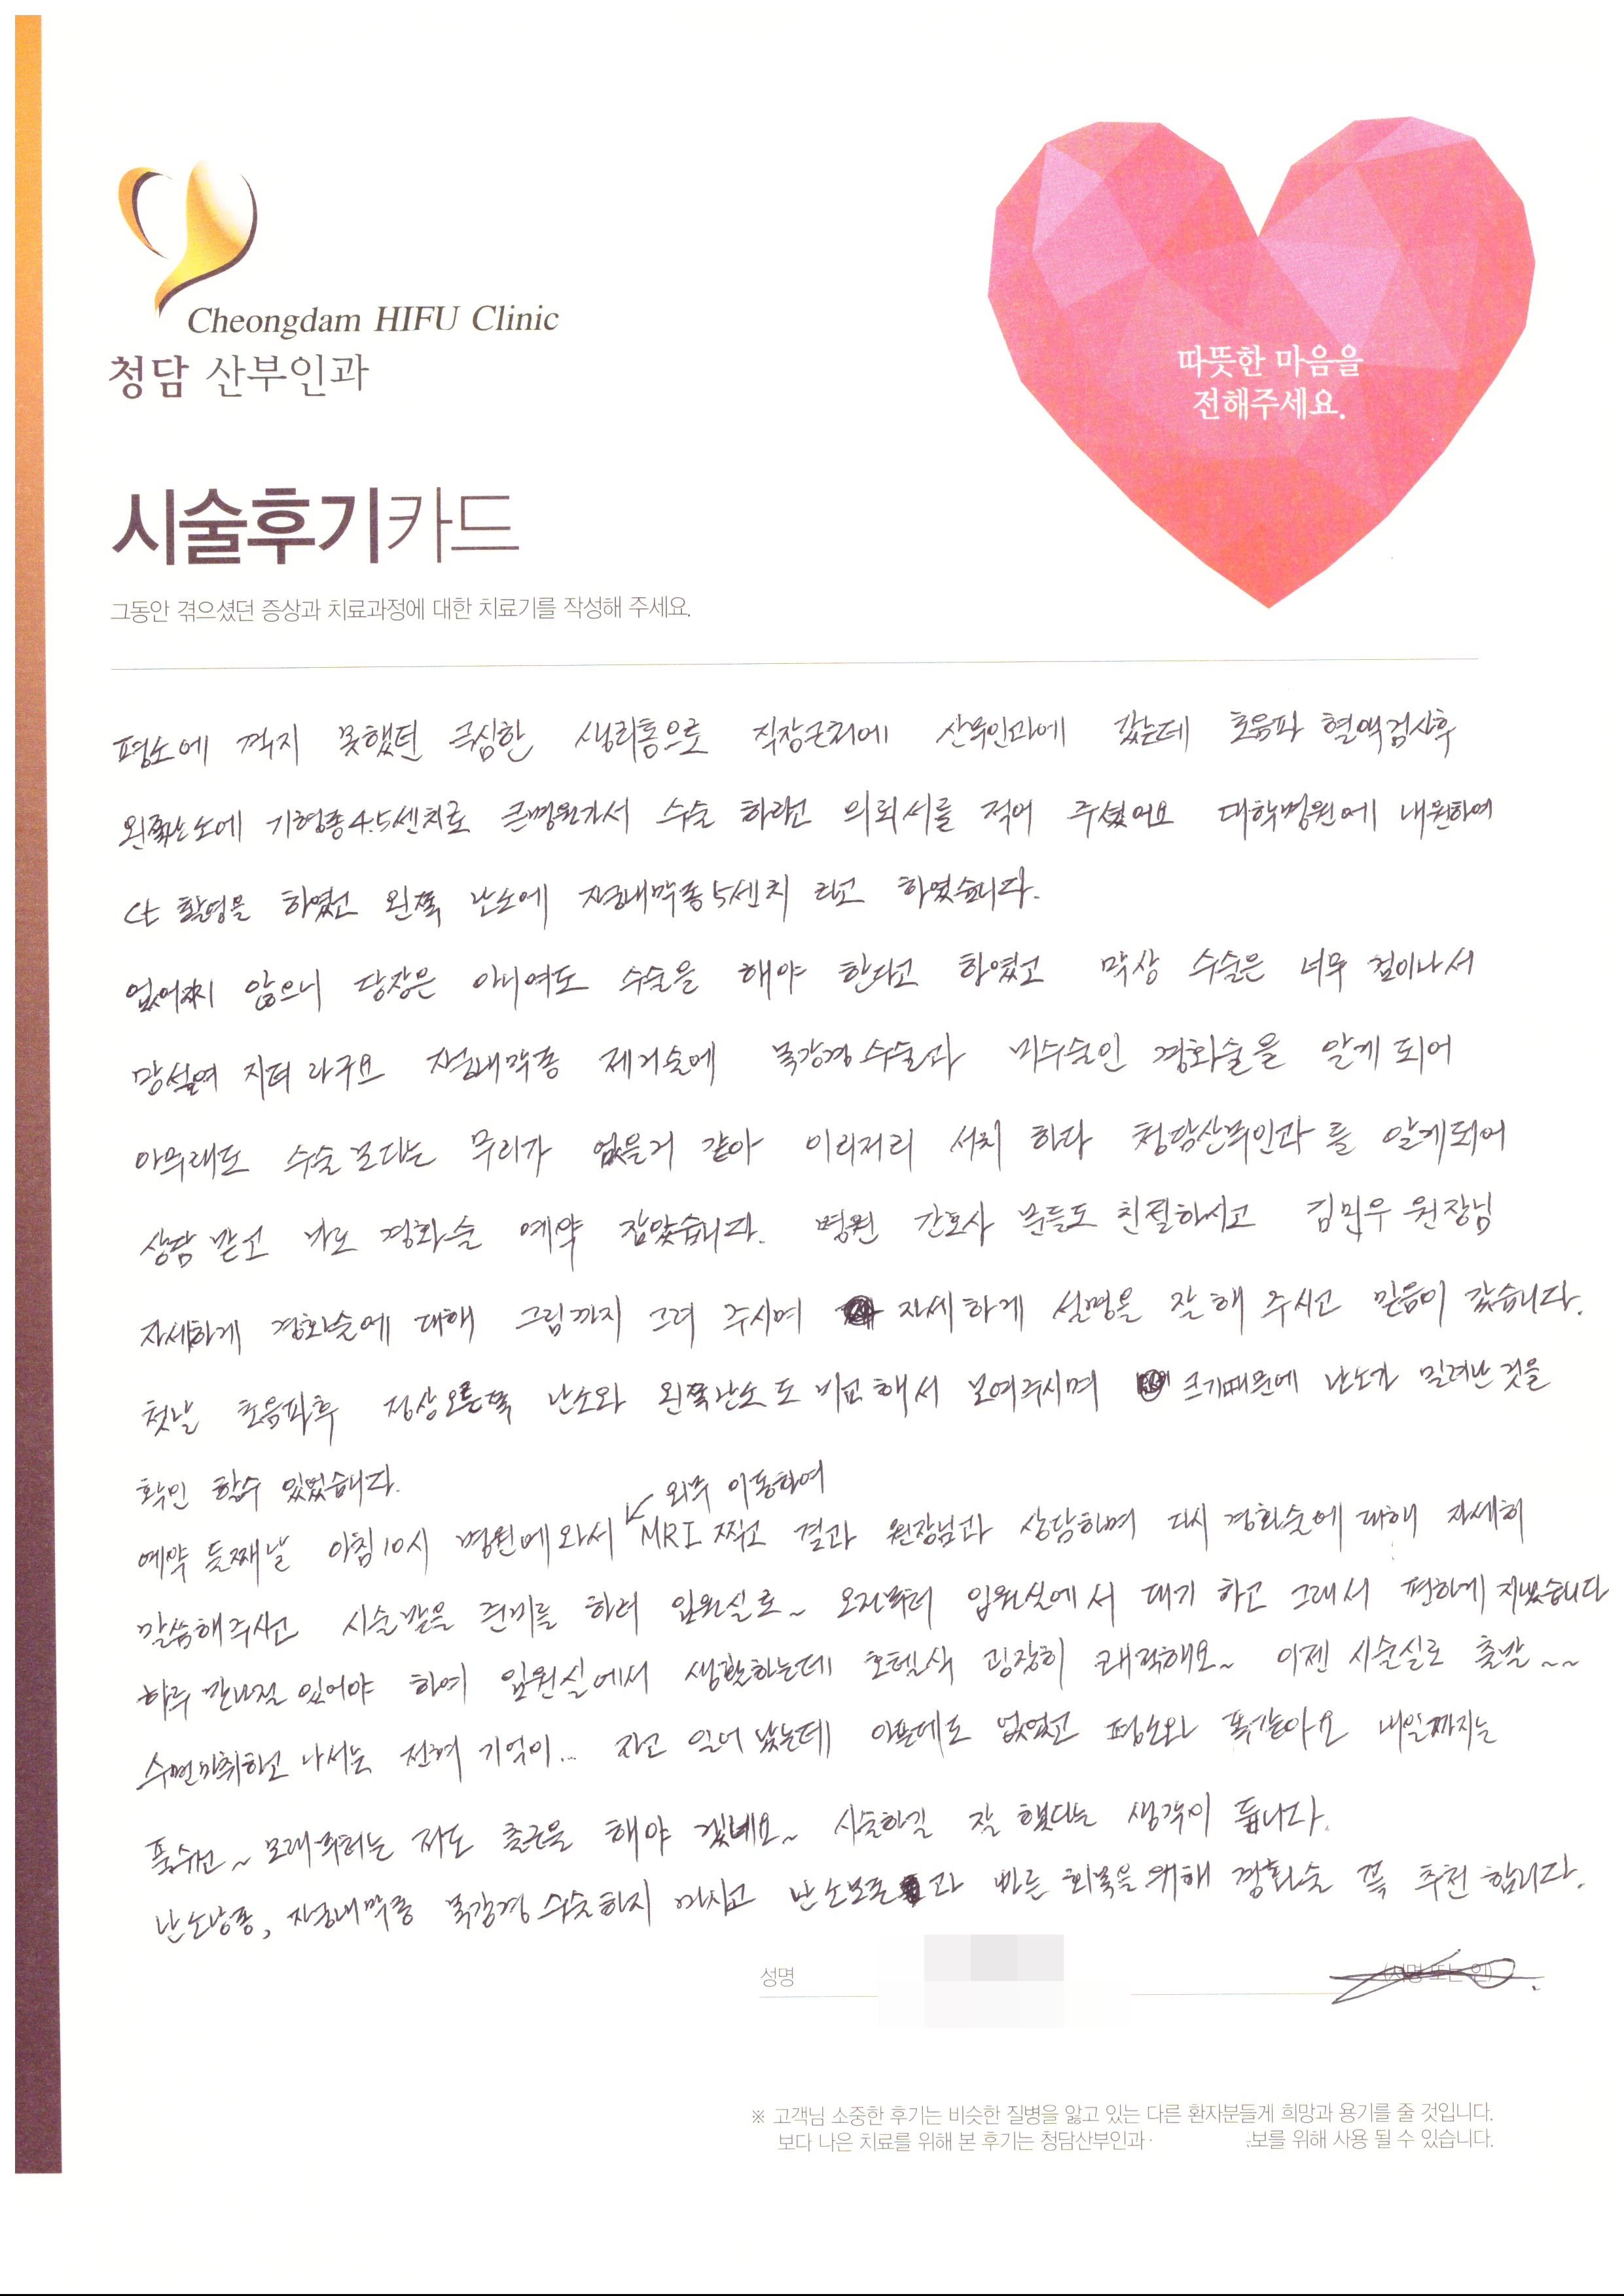 Cheongdam HIFU Clinic
청담 산부인과
따뜻한 마음을
전해주세요.
시술후기카드
그동안 겪으셨던 증상과 치료과정에 대한 치료기를 작성해 주세요.
평소에 꺽지 못했던 극심한 생리통으로 직장근처에 산부인과에 갔는데 초음파 혈액검사후
왼쪽난소에 기형종4.5센치로 큰병원가서 수술 하라고 의뢰서를 적어 주셨어요 대학병원에 내원하여
Ct 촬영을 하였고 왼쪽 난소에 자궁내막종5센치 라고 하였습니다.
없어지지 않으니 당장은 아니여도 수술을 해야 한다고 하였고 막상 수술은 너무 겁이나서
망설여 지더라구요 자궁내막종 제거술에 복강경수술과 비수술인 경화술을 알게 되어
아무래도 수술보다는 무리가 없을거 같아 이리저리 서치 하다 청담산부인과를 알게되어
상담 받고 바로 경화술 예약 잡았습니다. 병원 간호사 분들도 친절하시고 김민우 원장님
자세하게 경화술에 대해 그림까지 그려 주시며 자세하게 설명을 잘해 주시고 믿음이 갔습니다.
첫날 초음파후 정상오른쪽 난소와 왼쪽난소도 비교해서 보여주시며 크기때문에 난소가 밀려난 것을
확인 할수 있었습니다.
외부 이동하여
예약 듯째날 아침10시 병원에 와서 MRI 찍고 결과 원장님과 상담하며 다시 경화술에 대해 자세히
말씀해주시고 시술받을 준비를 하러 입원실로~ 오전부터 입원실에서 대기 하고 그래서 편하게 지냈습니다
하루 반나절 있어야 하여 입원실에서 생활하는데 호텔식 굉장히 쾌적해요~ 이젠 시술실로 출발~~
수면마취하고 나서는 전혀 기억이... 자고 일어 났는데 아픈데도 없었고 평소와 똑같아요 내일까지는
푹쉬고~ 모레부터는 저도 출근을 해야 겠네요~ 시술하길 잘 했다는 생각이 듭니다.
난소낭종, 자궁내막종 복강경 수술하지 마시고 난소보존과 빠른 회복을 위해 경화술 꼭 추천 합니다.
성명 (서명 또는 인)
※ 고객님 소중한 후기는 비슷한 질병을 앓고 있는 다른 환자분들게 희망과 용기를 줄 것입니다.
보다 나은 치료를 위해 본 후기는 청담산부인과 보를 위해 사용 될 수 있습니다.